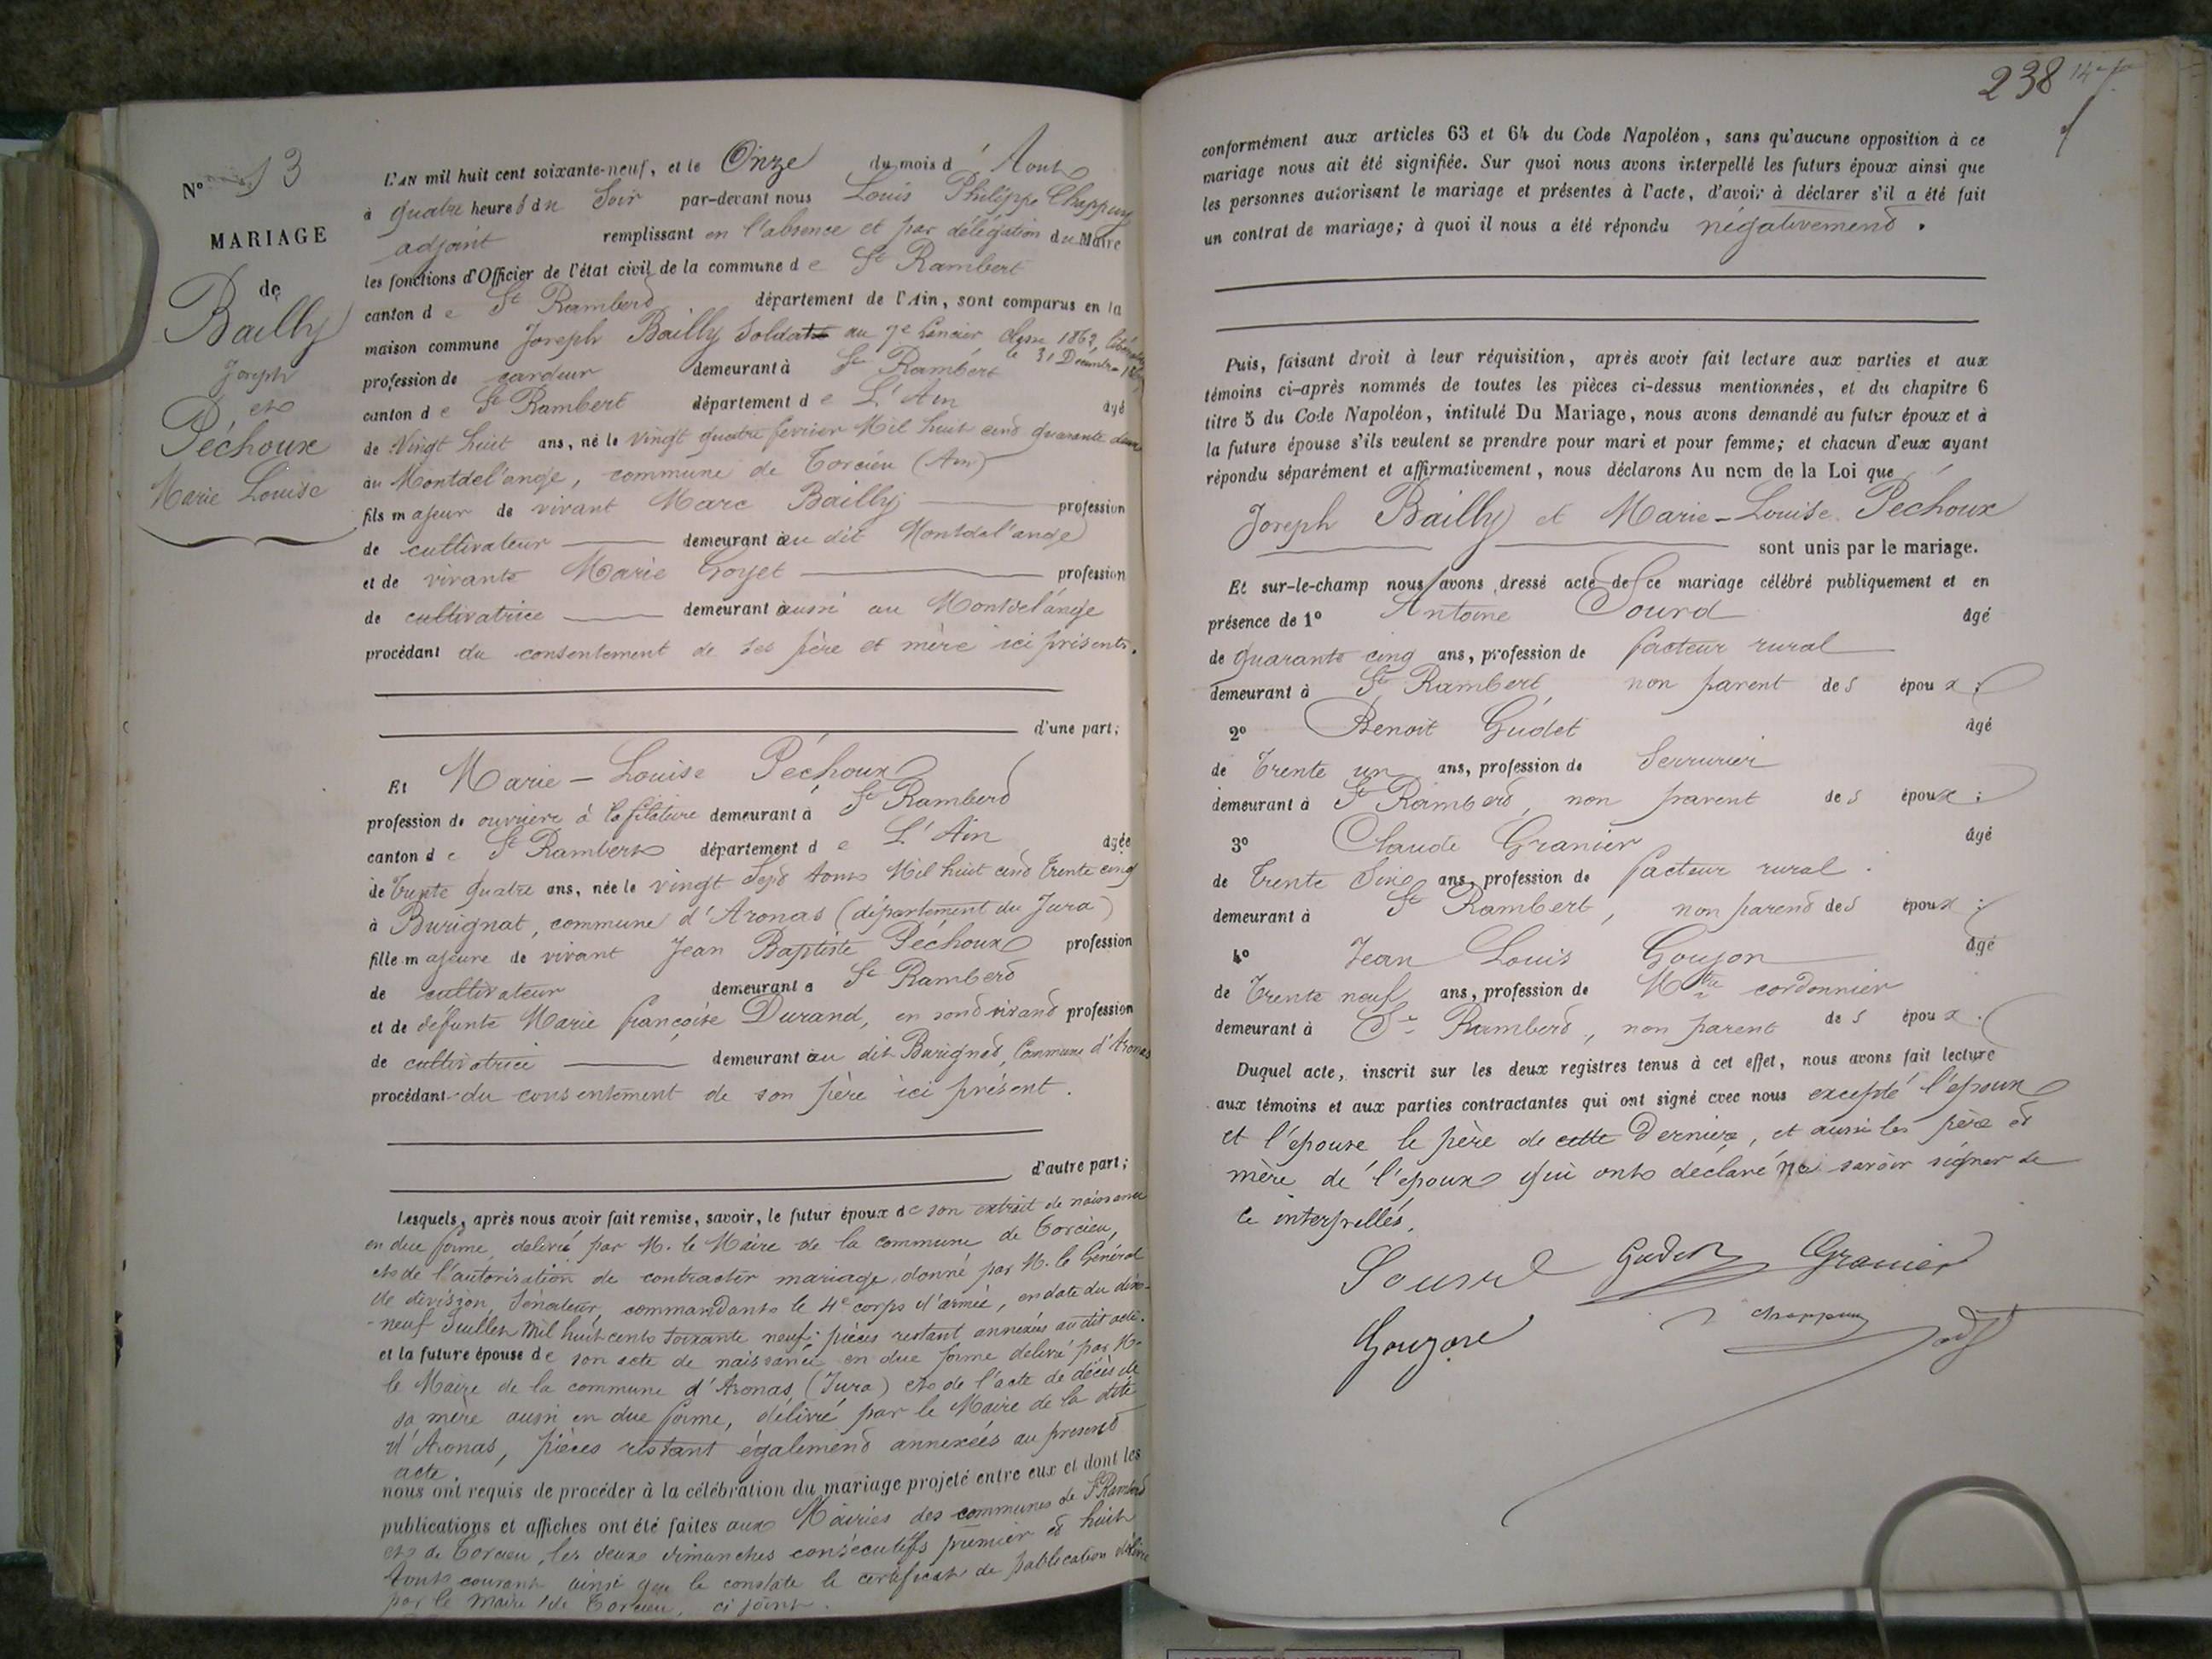 N° 13
MARIAGE
de
Bailly
Joseph
et
Péchoux
Marie Louise
L'AN mil huit cent soixante-neuf, et le Onze du mois d'Aout
à quatre heures du Soir par-devant nous Louis Philippe Chappuy
adjoint remplissant en l'absence et par délégation du Maire
les fonctions d'Officier de l'état civil de la commune de St Rambert
canton de St Rambert département de l'Ain, sont comparus en la
maison commune Joseph Bailly Soldat au 7e Lancier classe 1862,
le 31 Décembre
profession de cardeur demeurant à St Rambert
canton de St Rambert département de L'Ain âgé
de Vingt huit ans, né le vingt quatre fevrier Mil huit cent quarante deux
au Montdel'ange, commune de Torcieu (Ain)
fils majeur de vivant Marc Bailly profession
de cultivateur demeurant au dit Montdel'ange
et de vivante Marie Goyet profession
de cultivatrice demeurant aussi au Montdel'ange
procédant du consentement de ses père et mère ici présents.
d'une part;
Et Marie-Louise Péchoux
profession de ouvrière à la filature demeurant à St Rambert
canton de St Rambert département de L'Ain âgée
de Trente quatre ans, née le vingt Sept Aout Mil huit cent trente cinq
à Burignat, commune d'Aronas (département du Jura)
fille majeure de vivant Jean Baptiste Péchoux profession
de cultivateur demeurant à St Rambert
et de défunte Marie françoise Durand, en son vivant profession
de cultivatrice demeurant au dit Burignat, Commune d'Aronas
procédant du consentement de son père ici présent.
d'autre part;
Lesquels, après nous avoir fait remise, savoir, le futur époux de son extrait de naissance
en due forme, delivré par M. le Maire de la commune de Torcieu,
et de l'autorisation de contracter mariage donné par M. le Général
de division, Sénateur, commandant le 4e corps d'armée, en date du dix-
-neuf Juillet Mil huit cent soixante neuf; pièces restant annexées au dit acte.
et la future épouse de son acte de naissance en due forme delivré par M.
le Maire de la commune d'Aronas (Jura) et de l'acte de décès de
sa mère aussi en due forme, délivré par le Maire de la dite
d'Aronas, pièces restant également annexées au present
acte.
nous ont requis de procéder à la célébration du mariage projeté entre eux et dont les
publications et affiches ont été faites aux Mairies des communes de St Rambert
et de Torcieu, les deux dimanches consécutifs premier et huit
Aout courant ainsi que le constate le certificat de publication délivré
par le Maire de Torcieu, ci joint.
238
conformément aux articles 63 et 64 du Code Napoléon, sans qu'aucune opposition à ce
mariage nous ait été signifiée. Sur quoi nous avons interpellé les futurs époux ainsi que
les personnes autorisant le mariage et présentes à l'acte, d'avoir à déclarer s'il a été fait
un contrat de mariage; à quoi il nous a été répondu négativement.
Puis, faisant droit à leur réquisition, après avoir fait lecture aux parties et aux
témoins ci-après nommés de toutes les pièces ci-dessus mentionnées, et du chapitre 6
titre 5 du Code Napoléon, intitulé Du Mariage, nous avons demandé au futur époux et à
la future épouse s'ils veulent se prendre pour mari et pour femme; et chacun d'eux ayant
répondu séparément et affirmativement, nous déclarons Au nom de la Loi que
Joseph Bailly et Marie-Louise Péchoux
sont unis par le mariage.
Et sur-le-champ nous avons dressé acte de ce mariage célébré publiquement et en
présence de 1° Antoine Sourd âgé
de quarante cinq ans, profession de facteur rural
demeurant à St Rambert, non parent des époux;
2° Benoit Gudet âgé
de Trente un ans, profession de Serrurier
demeurant à St Rambert, non parent des époux;
3° Claude Granier âgé
de Trente Six ans, profession de facteur rural.
demeurant à St Rambert, non parent des époux;
4° Jean Louis Goujon âgé
de Trente neuf ans, profession de Md cordonnier
demeurant à St Rambert, non parent des époux.
Duquel acte, inscrit sur les deux registres tenus à cet effet, nous avons fait lecture
aux témoins et aux parties contractantes qui ont signé avec nous excepté l'epoux
et l'epouse le père de cette Dernière, et aussi les père et
mère de l'epoux qui ont déclaré ne savoir signer de
ce interpellés.
Gudet Granier
Goujon Chappuy adj